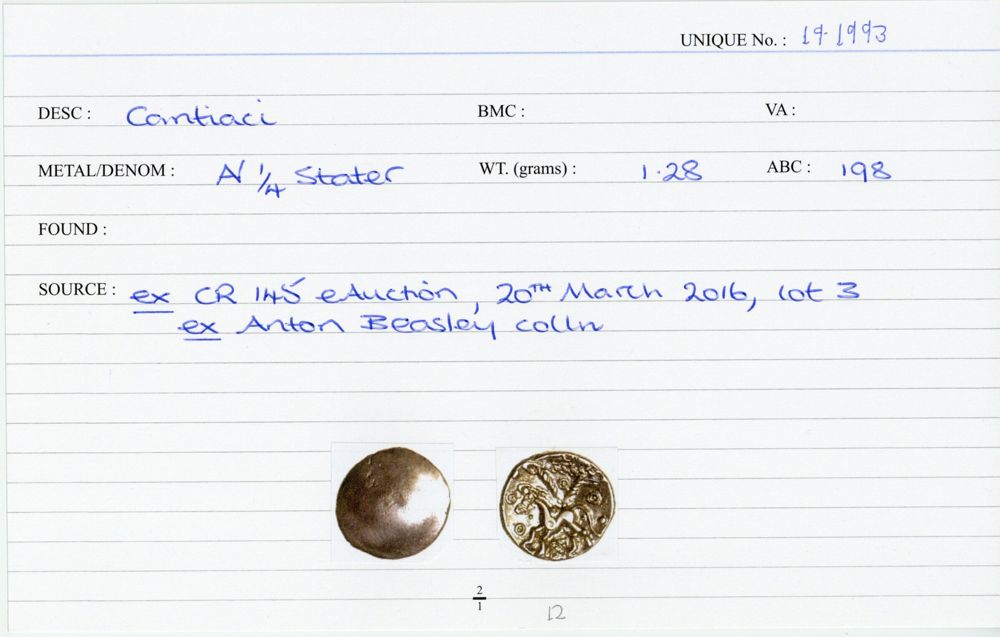 UNIQUE No. : 19.1993
DESC : Cantiaci BMC : VA :
METAL/DENOM : AV 1/4 Stater WT. (grams) : 1.28 ABC : 198
FOUND :
SOURCE : ex CR 145 eAuction, 20TH March 2016, lot 3
ex Anton Beasley colln
2
1
12